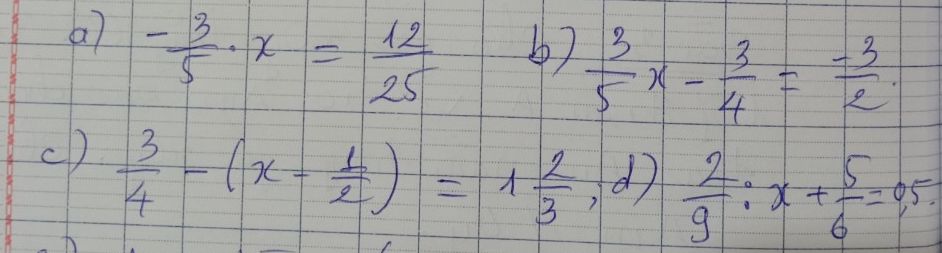 a) -3/5 . x = 12/25 b) 3/5 x - 3/4 = -3/2.
c) 3/4 - (x - 1/2) = 1 2/3 ; d) 2/9 : x + 5/6 = 0,5.